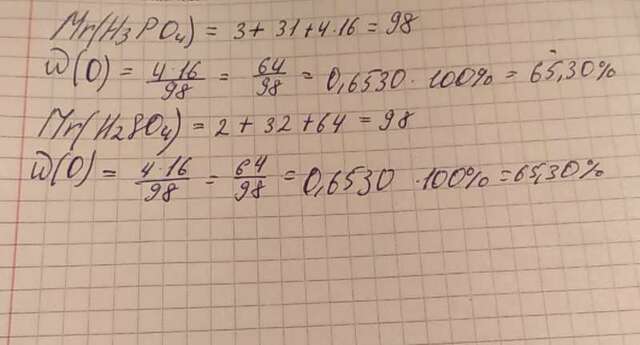 Mr(H₃PO₄) = 3 + 31 + 4·16 = 98
W(O) = 4·16/98 = 64/98 = 0,6530 · 100% = 65,30%
Mr(H₂SO₄) = 2 + 32 + 64 = 98
W(O) = 4·16/98 = 64/98 = 0,6530 · 100% = 65,30%